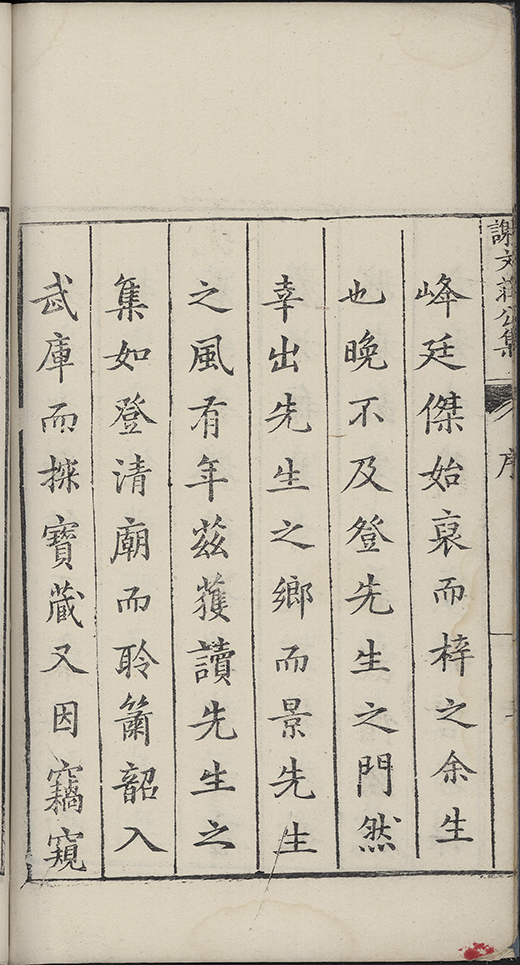 謝文莊公集
序
峰廷傑始裒而梓之余生
也晚不及登先生之門然
幸出先生之鄉而景先生
之風有年茲獲讀先生之
集如登清廟而聆簫韶入
武庫而探寶藏又因竊窺